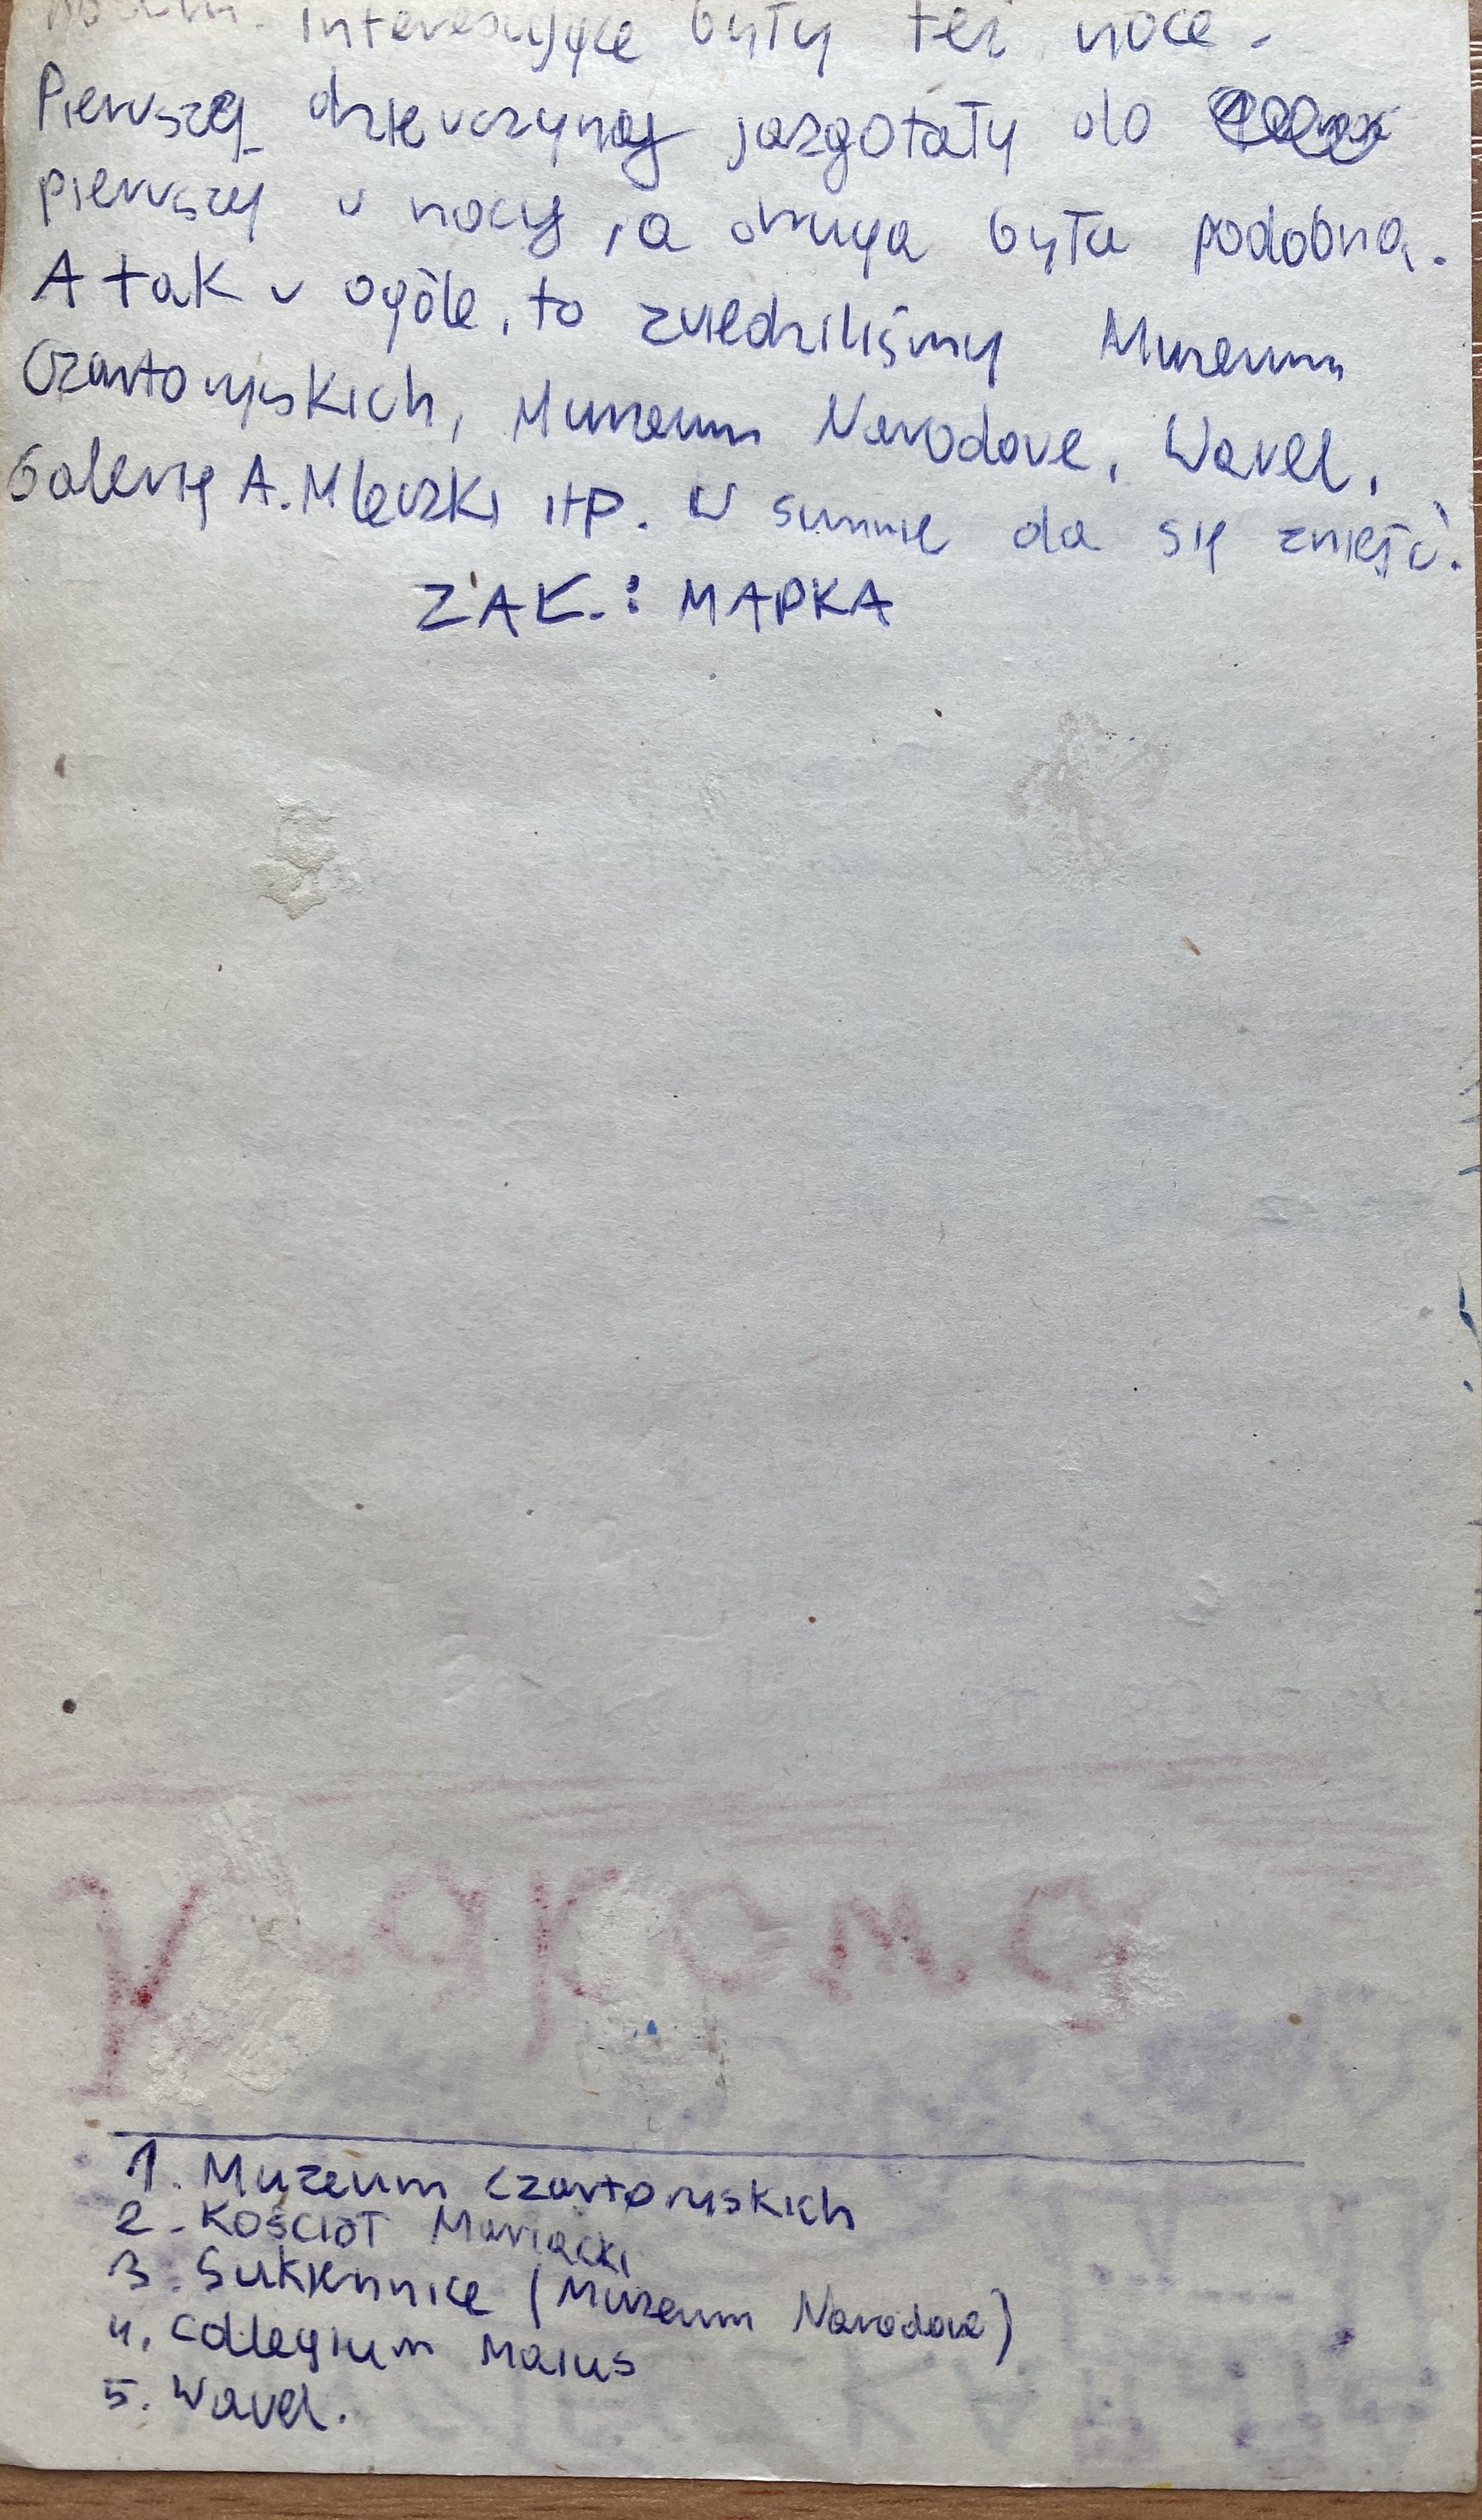 Interesujące były też noce.
Pierwszą dziewczyny jazgotały do
pierwszej w nocy, a druga była podobna.
A tak w ogóle, to zwiedziliśmy Muzeum
Czartoryjskich, Muzeum Narodowe, Wawel,
Galerię A. Mleczki itp. W sumie da się znieść.
ZAŁ.: MAPKA
1. Muzeum Czartoryskich
2. Kościół Mariacki
3. Sukiennice (Muzeum Narodowe)
4. Collegium Maius
5. Wawel.